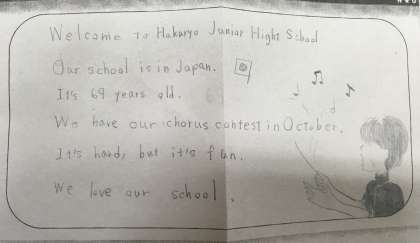 Welcome to Hakuryo Junior Hight School
Our school is in Japan.
It's 69 years old.
We have our chorus contest in October.
It's hard, but it's fun.
We love our school.